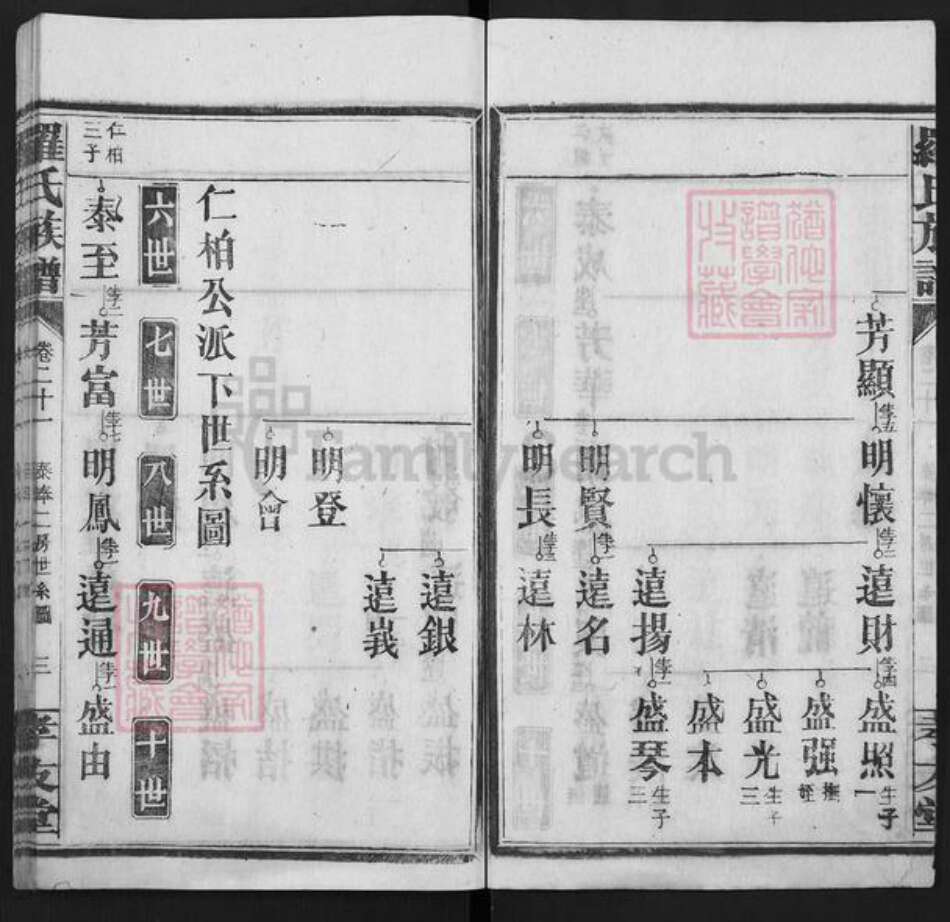 羅氏族譜
芳顯 生子五
明懷 生子二
遠財 生子四
盛照 生子一
盛强 撫姪
盛光 生子三
盛本
遠揚 生子一
盛琴 生子三
明賢 生子一
遠名
明長
遠林
孝友堂
遠銀
遠義
明登
明會
仁柏公派下世系圖
六世
七世
八世
九世
十世
仁柏三子
泰至 生子二
芳富 生子七
明鳳 生子一
遠通 生子一
盛由
羅氏族譜
卷二十一
泰奉二房世系圖
三
孝友堂
FamilySearch